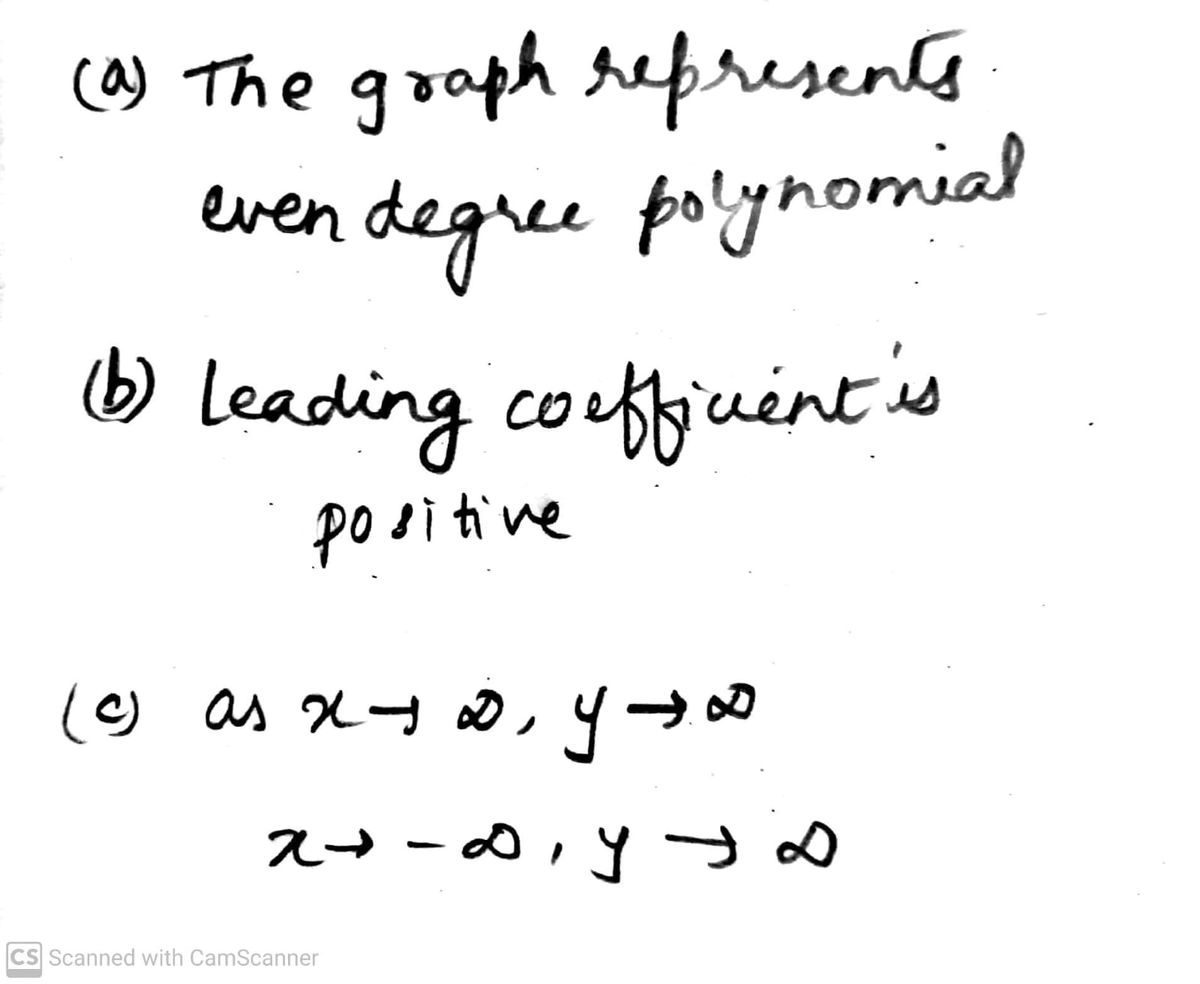 (a) The graph represents
even degree polynomial
(b) Leading coefficient is
positive
(c) as x → ∞, y → ∞
x → -∞, y → ∞
CS Scanned with CamScanner